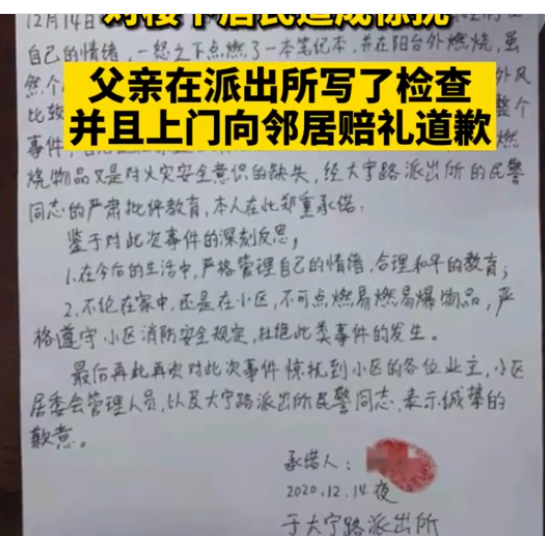 对楼下居民造成惊扰
12月14日
自己的情绪，一怒之下点燃了一本笔记本，并在阳台外燃烧，虽
然个
外风
父亲在派出所写了检查
比较
整个
并且上门向邻居赔礼道歉
事件，
燃
烧物品又是对火灾安全意识的缺失，经大宁路派出所的民警
同志的严肃批评教育，本人在此郑重承诺：
鉴于对此次事件的深刻反思，
1.在今后的生活中，严格管理自己的情绪，合理和平的教育；
2.不伦在家中，还是在小区，不可点燃易燃易爆物品，严
格遵守小区消防安全规定，杜绝此类事件的发生。
最后再此再次对此次事件惊扰到小区的各位业主，小区
居委会管理人员，以及大宁路派出所民警同志，表示诚挚的
歉意。
承诺人：
2020.12.14夜
于大宁路派出所